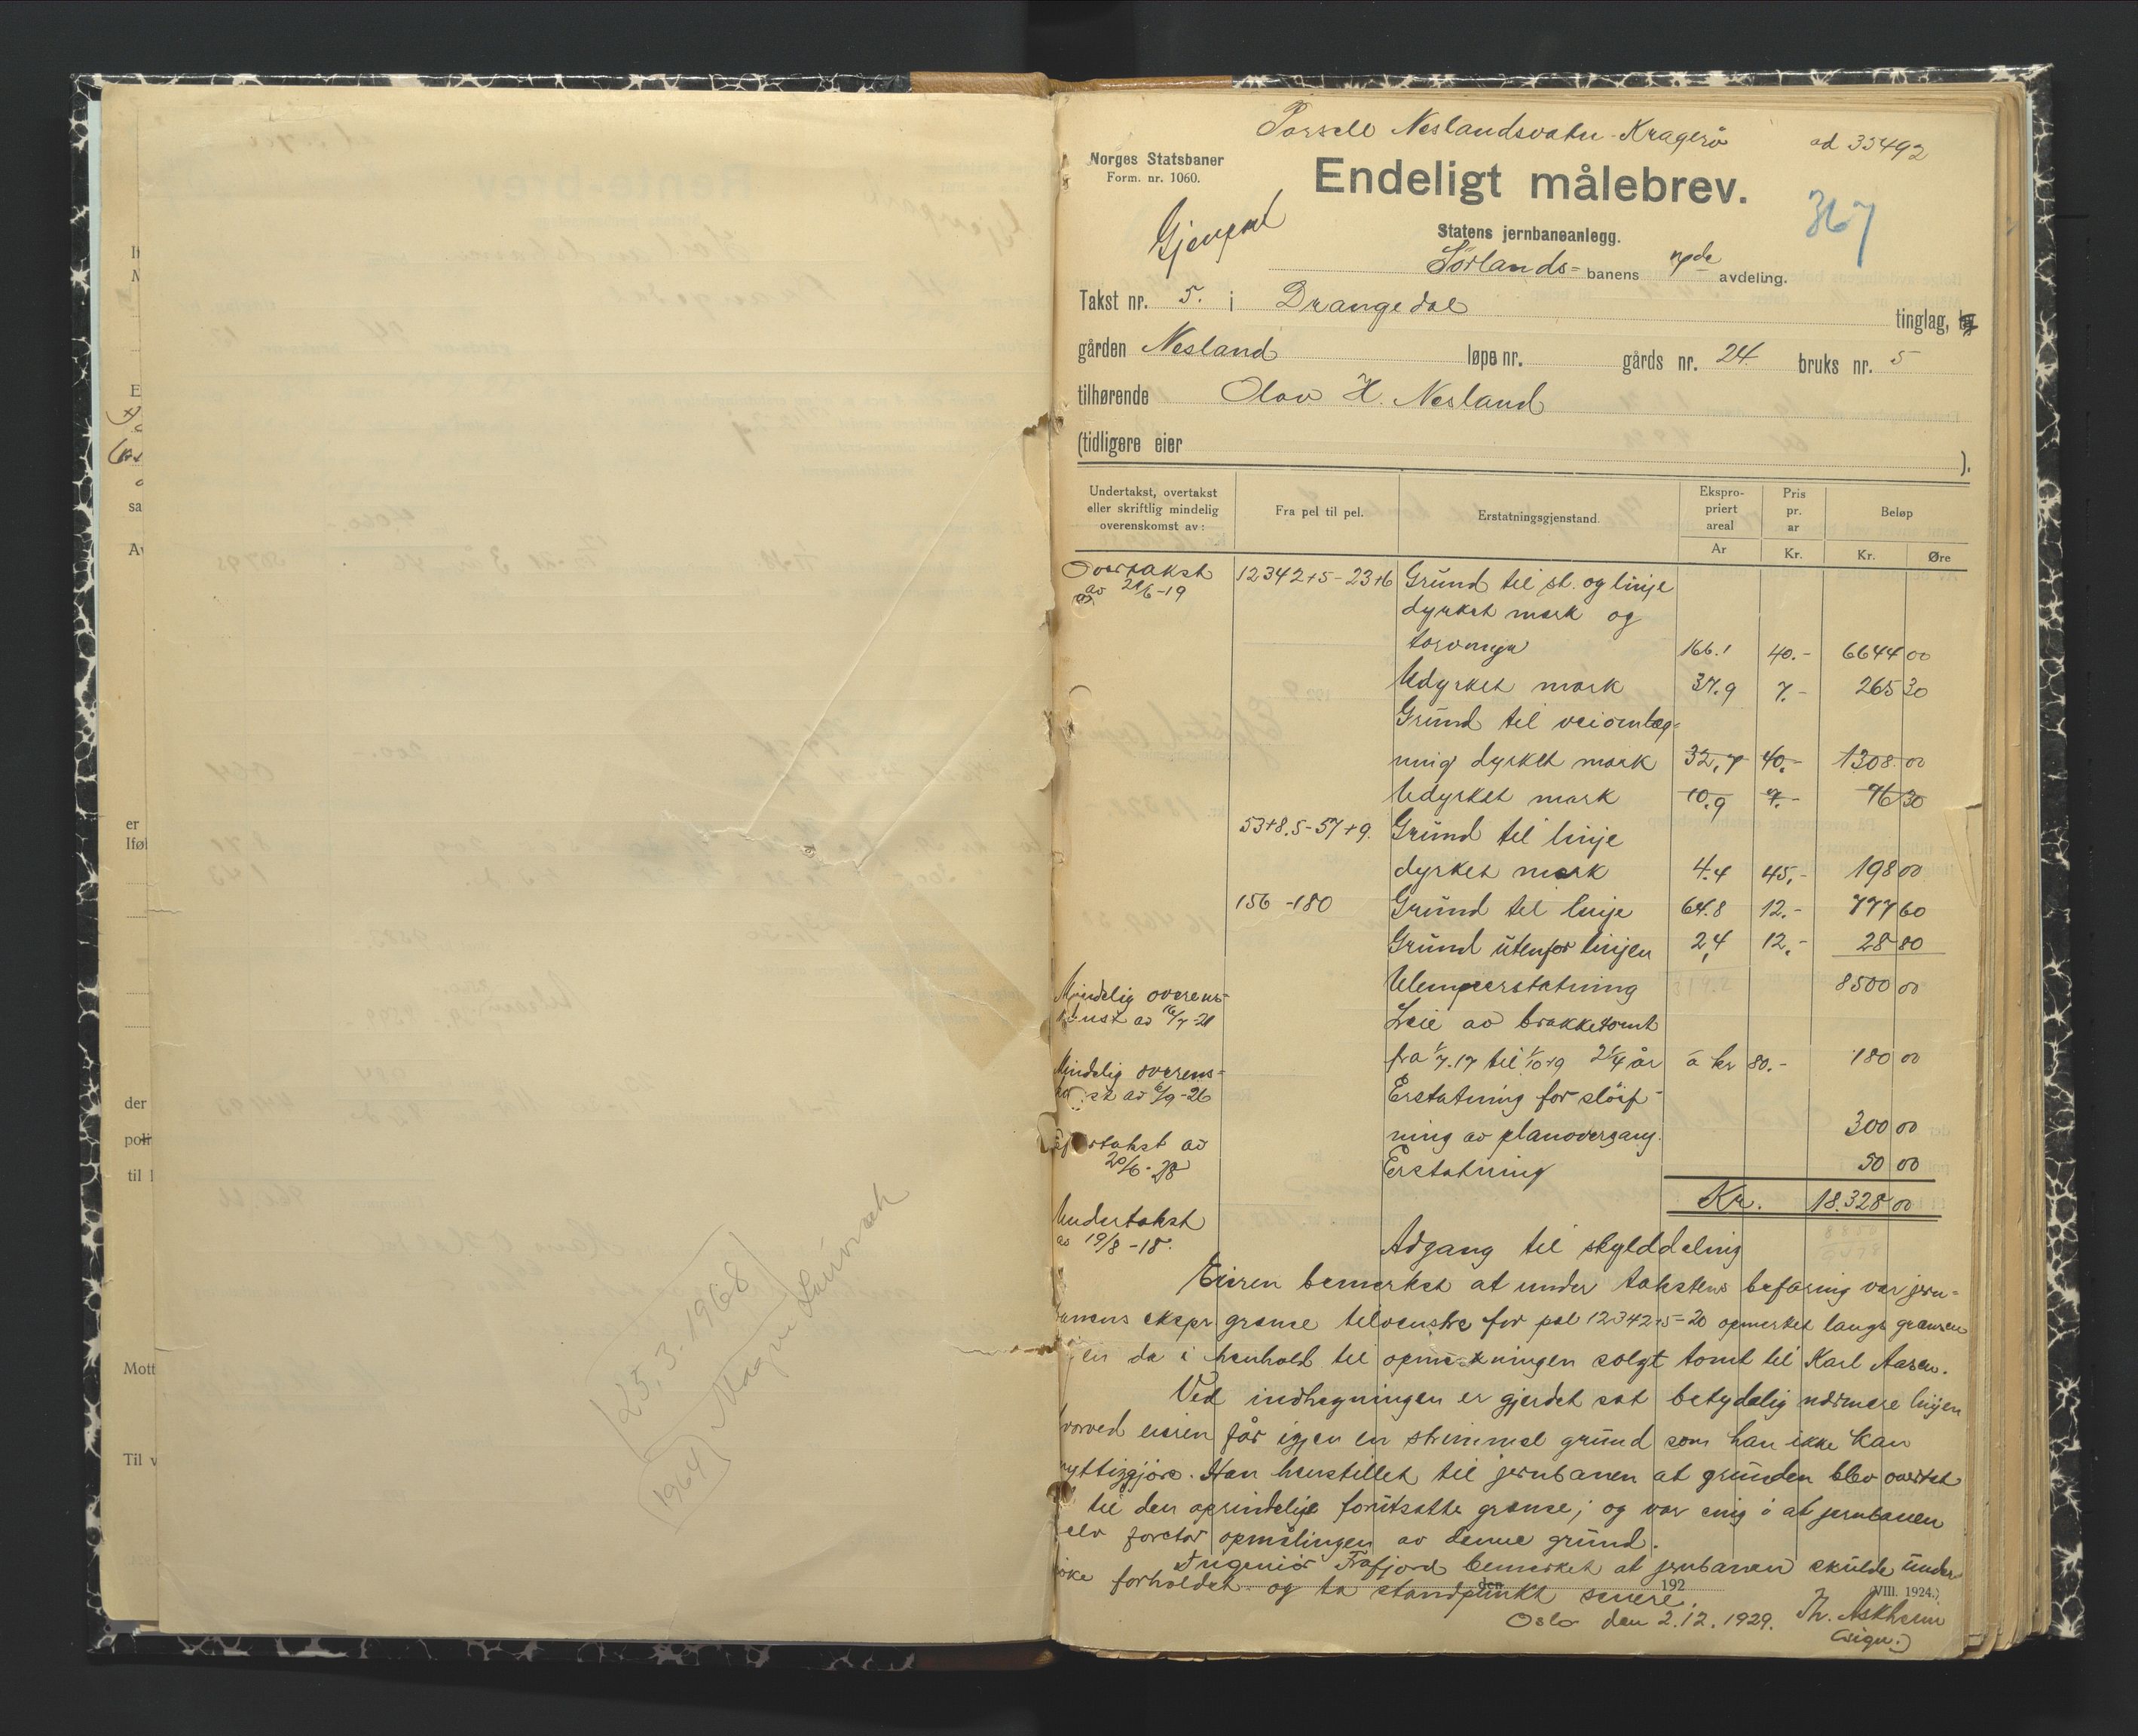 Parsell Neslandsvatn-Kragerö
ad 33492
Norges Statsbaner
Form. nr. 1060.
Endeligt målebrev.
367
Gjenpart
Statens jernbaneanlegg.
Sörlands- banens avdeling.
Takst nr. 5. i Drangedal tinglag,
gården Nesland løpe nr. gårds nr. 24 bruks nr. 5
tilhørende Olav H. Nesland
(tidligere eier ).
Undertakst, overtakst eller skriftlig mindelig overenskomst av:
Fra pel til pel.
Erstatningsgjenstand.
Ekspropriert areal
Ar
Pris pr. ar
Kr.
Beløp
Kr. Øre
Overtakst 12342+5-23+6 Grund til st. og linje
av 21/6-19 dyrket mark og
torvmyr 166.1 40.- 6644 00
Udyrket mark 37.9 7.- 265 30
Grund til veiomlæg-
ning dyrket mark 32,7 40.- 1308 00
Udyrket mark 10.9 7.- 76 30
53+8.5-57+9. Grund til linje
dyrket mark 4.4 45,- 198 00
156-180 Grund til linje 64.8 12.- 777 60
Grund utenfor linjen 2,4 12.- 28 80
Ulempeerstatning 8500 00
Mindelig overens-
komst av 16/7-21 Leie av brakketomt
fra 1/7.17 til 1/10-19 2 1/4 år à kr 80.- 180 00
Mindelig overens-
komst av 6/9-26 Erstatning for slöif-
ning av planovergang. 300 00
Overtakst av
20/6-28 Erstatning 50 00
Kr. 18.328 00
Undertakst
av 19/8-18. Adgang til skylddeling
Eieren bemerket at under takstens befaring var jern-
banens ekspr grense tilvenstre for pel 12342+5-20 opmerket langs grensen
da i henhold til opmerkningen solgt tomt til Karl Aasen.
Ved indhegningen er gjerdet sat betydelig nærmere linjen
hvorved eieren får igjen en strimmel grund som han ikke kan
nyttiggjöre. Han henstillet til jernbanen at grunden blev overtat
til den oprindelige forutsatte grense; og var enig i at jernbanen
selv foretar opmålingen av denne grund.
Ingeniör Trafjord bemerket at jernbanen skulde under-
söke forholdet og ta standpunkt senere.
den 192
(VIII. 1924.)
Oslo den 2.12.1929. Th. Askheim
(sign.)
25.3.1968
Magne
(1964)
er
Iføl
der
til
Mott
Til v